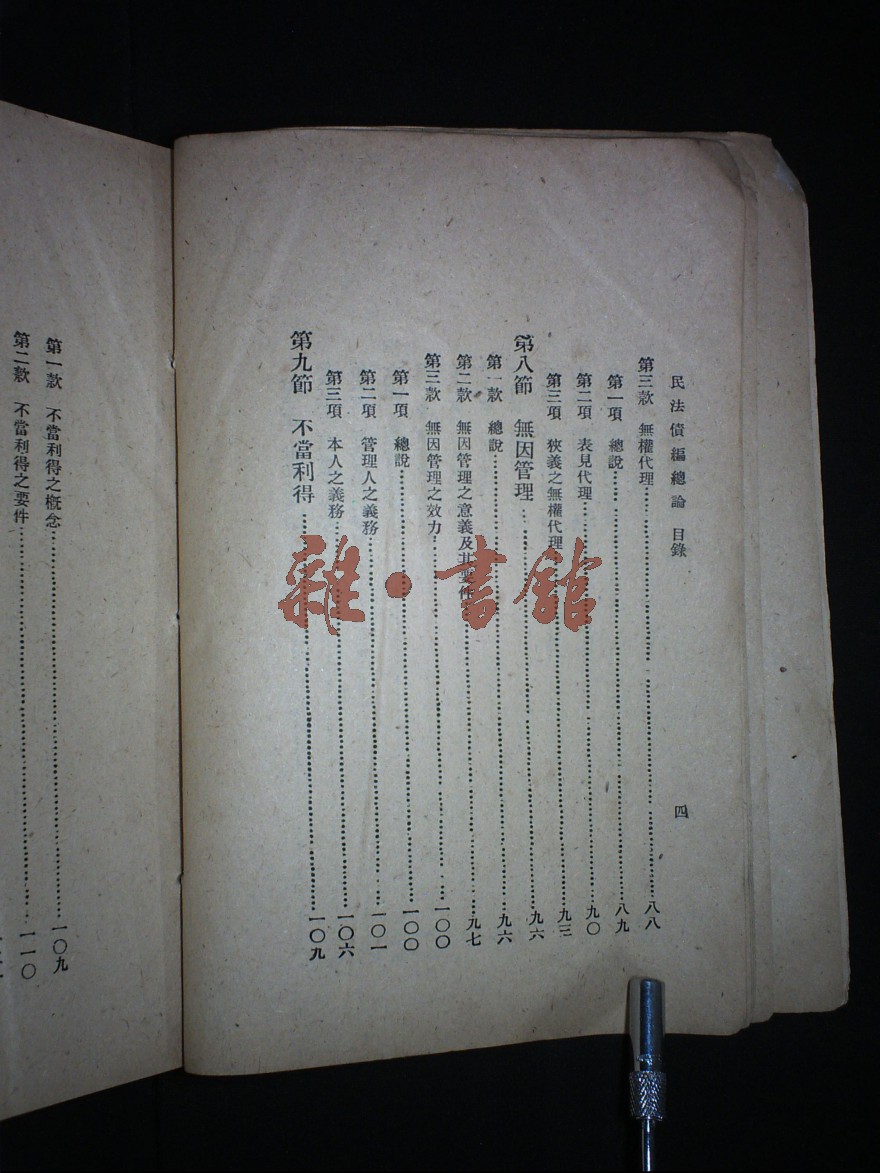 民法債編總論 目錄 四
第三款 無權代理 八八
第一項 總說 八九
第二項 表見代理 九〇
第三項 狹義之無權代理 九三
第八節 無因管理 九六
第一款 總說 九六
第二款 無因管理之意義及其要件 九七
第三款 無因管理之效力 一〇〇
第一項 總說 一〇〇
第二項 管理人之義務 一〇一
第三項 本人之義務 一〇六
第九節 不當利得 一〇九
第一款 不當利得之概念 一〇九
第二款 不當利得之要件 一一〇
雜·書館